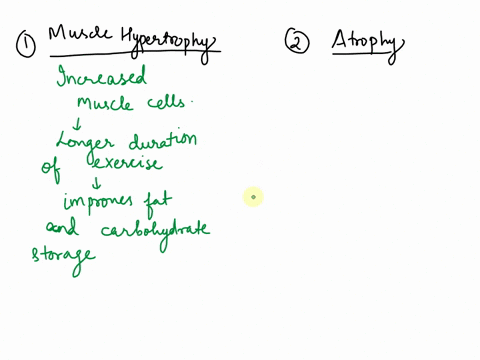 ① Muscle Hypertrophy
Increased
Muscle cells.
↓
Longer duration
of exercise
↓
improves fat
and carbohydrate
storage
② Atrophy